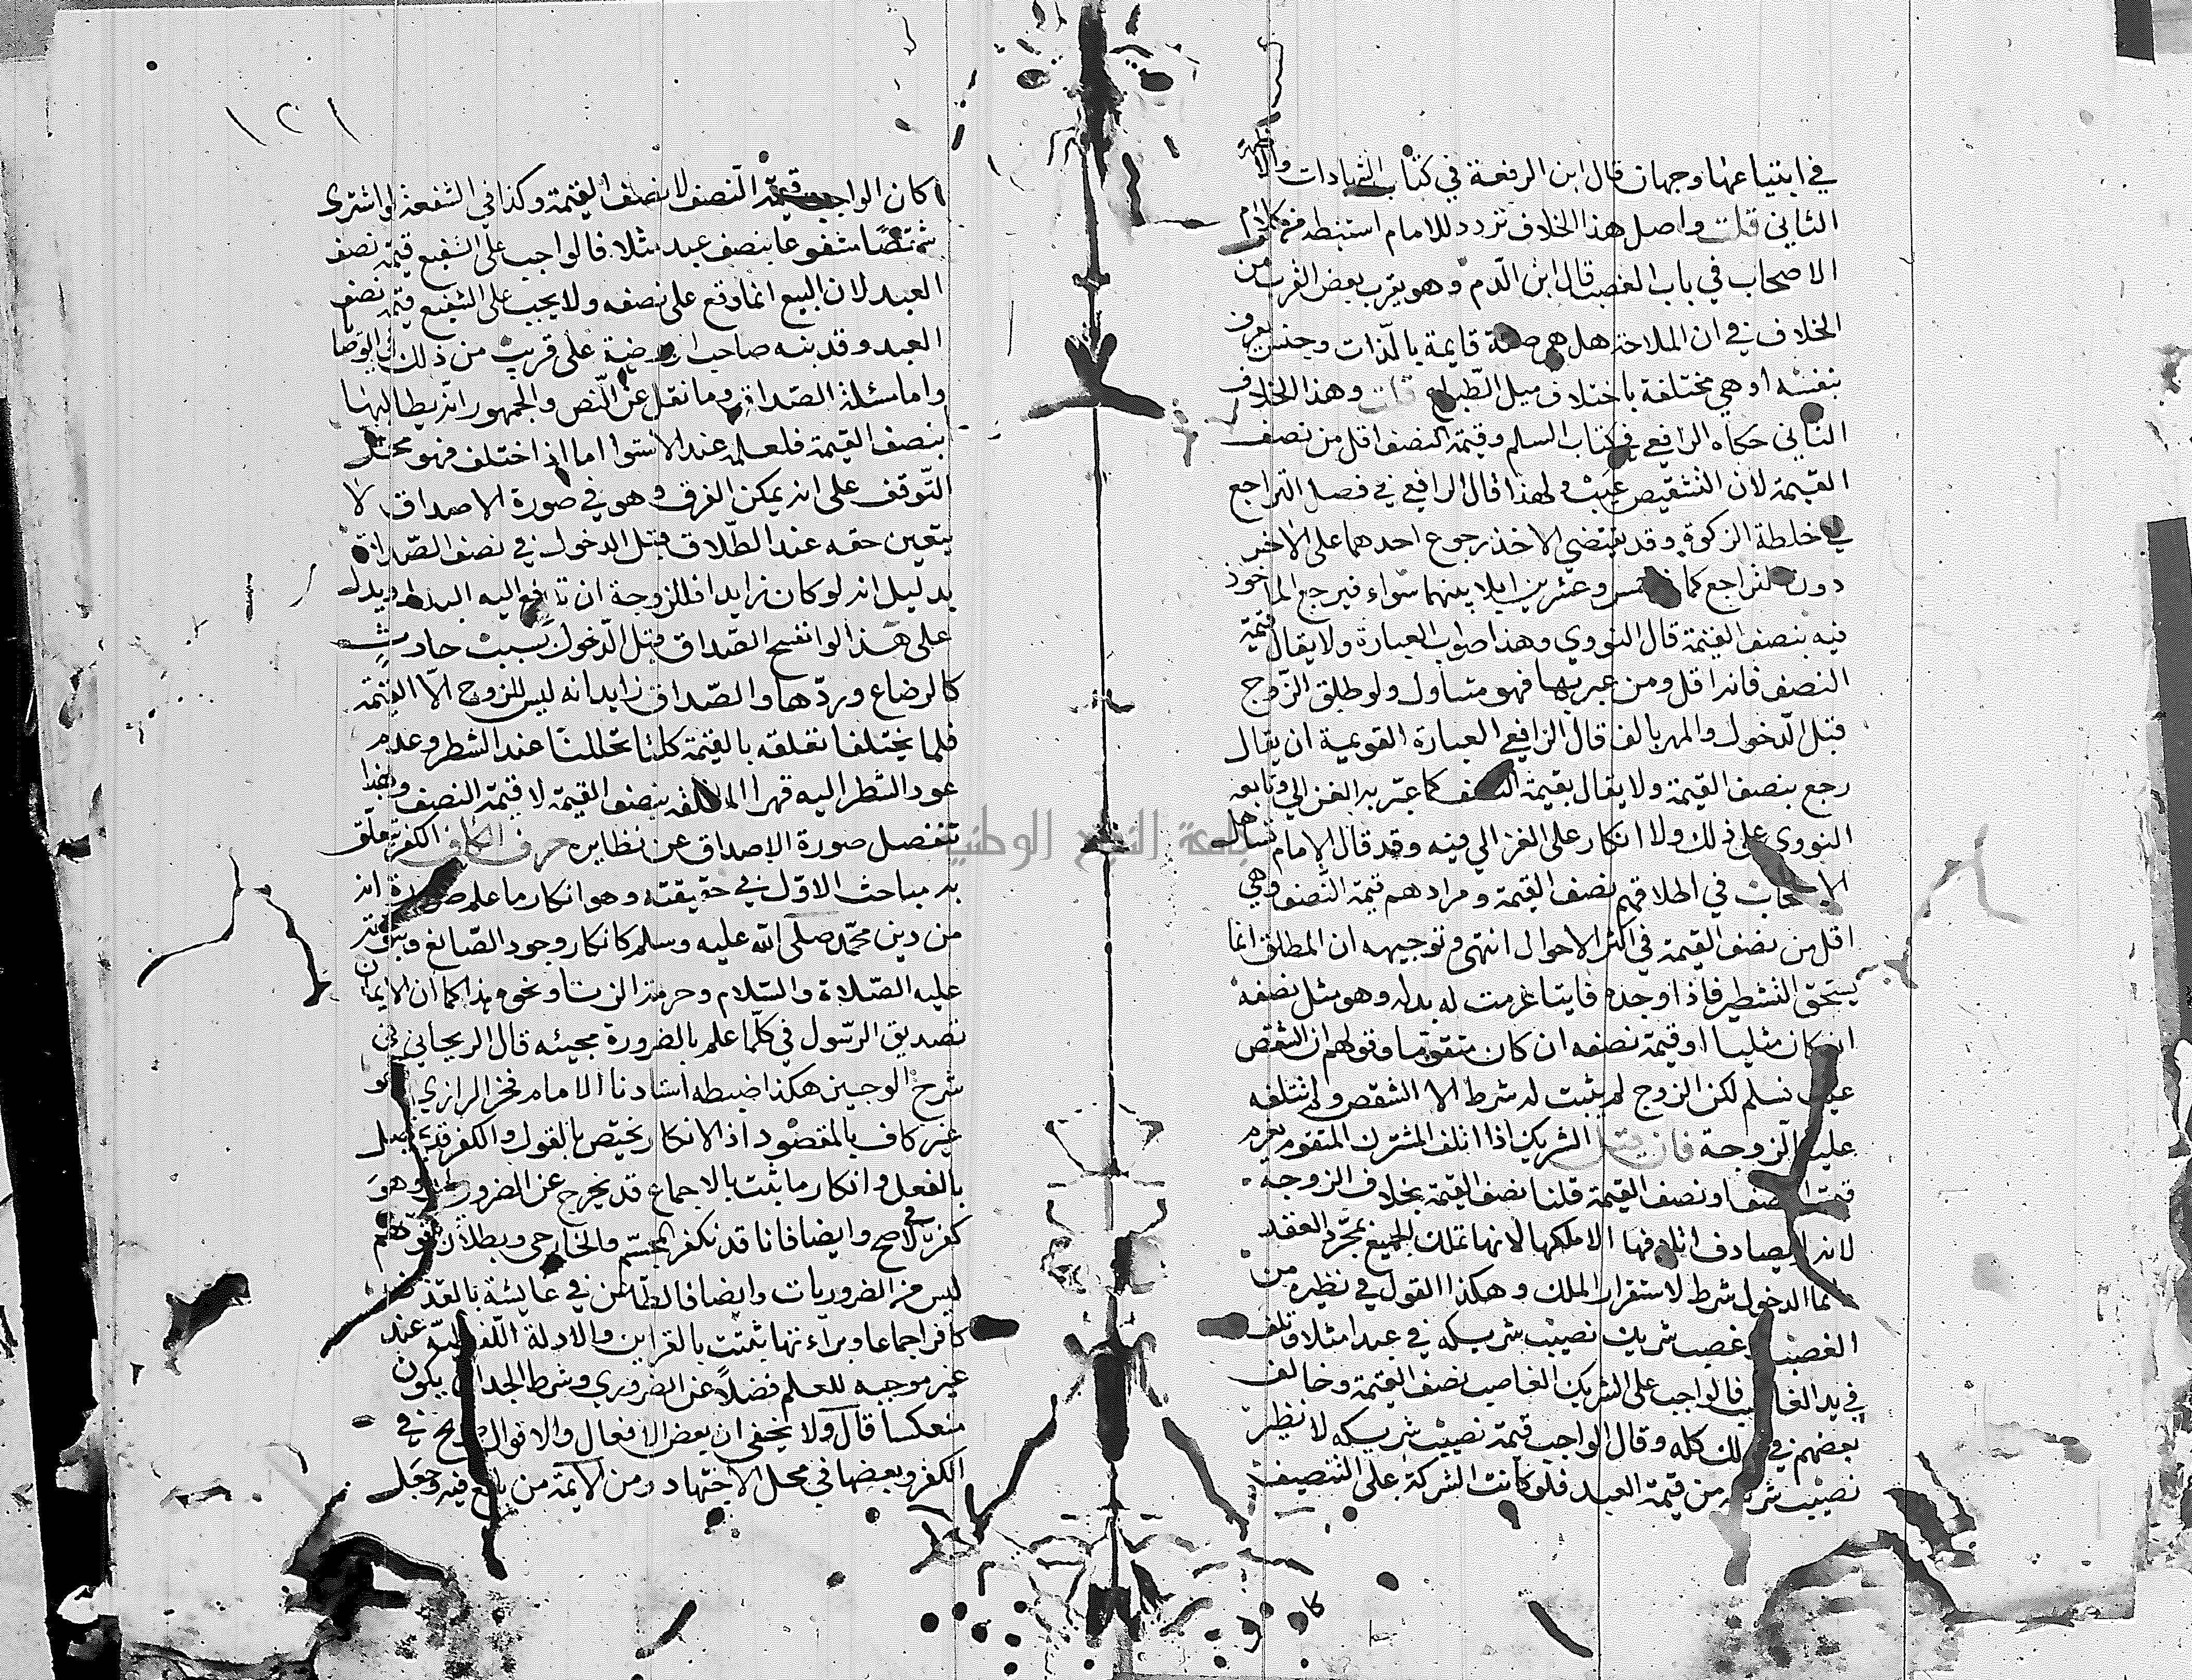 في ابتياعها وجهان قال ابن الرفعة في كتاب الشهادات والاشبه
الثاني قلت واصل هذا الخلاف تردد للامام استنبطه من كلام
الاصحاب في باب الغصب قال ابن الدم وهو يقرب بعض القرب من
الخلاف في ان الملاحة هل هي صفة قايمة بالذات وجنس يعرف
بنفسه او هي مختلفة باختلاف ميل الطباع قلت وهذا الخلاف
الثاني حكاه الرافعي في كتاب السلم وقيمة النصف اقل من نصف
القيمة لان التشقيص عيب ولهذا قال الرافعي في فصل التراجع
في خلطة الزكوة وقد يقتضي الاخذ رجوع احدهما على الاخر
دون التراجع كما وعشرين ابلا بينهما سواء فيرجع الماخوذ
فيه بنصف القيمة قال النووي وهذا صواب العبارة ولا يقال قيمة
النصف فانه اقل ومن عبر بها فهو متساول ولو طلق الزوج
قبل الدخول والمهر بالف قال الرافعي العبارة القويمية ان يقال
رجع بنصف القيمة ولا يقال بقيمة النصف كما عبر به الغزالي وتابعه
النووي على ذلك ولا انكار على الغزالي فيه وقد قال الامام تساهل
الاصحاب في اطلاقهم نصف القيمة ومرادهم قيمة النصف وهي
اقل من نصف القيمة في اكثر الاحوال انتهى وتوجيهه ان المطلق انما
يستحق التشطير فاذا وجده فايتا غرمت له بدله وهو مثل نصفه
ان كان مثليا او قيمة نصفه ان كان متقوما وقولهم ان الشقص
عيب نسلم لكن الزوج لم يثبت له شرط الا الشقص ولم نتلفه
عليه الزوجة فان قيل الشريك اذا اتلف المشترك المتقوم يغرم
قيمة النصف او نصف القيمة قلنا نصف القيمة بخلاف الزوجة
لانه لم يصادف اتلافها الا ملكها لانها تملك الجميع بمجرد العقد
انما الدخول شرط لاستقرار الملك وهكذا القول في نظيره من
الغصب لو غصب شريك نصيب شريكه في عبد مثلا وتلف
في يد الغاصب فالواجب على الشريك الغاصب نصف القيمة وخالف
بعضهم في ذلك كله وقال الواجب قيمة نصيب شريكه لا نظير
نصيب شريكه من قيمة العبد فلو كانت الشركة على التنصيف
كا
١٢١
كان الواجب قيمة النصف لا نصف القيمة وكذا في الشفعة لو اشترى
شقصا مشفوعا بنصف عبد مثلا فالواجب على الشفيع قيمة نصف
العبد لان البيع انما وقع على نصفه ولا يجب على الشفيع قيمة نصف
العبد وقد نبه صاحب على قريب من ذلك في الوصايا
واما مسئلة الصداق وما نقل عن النص والجمهور انه يطالبها
بنصف القيمة فلعله عند الاستوا اما اذا اختلف فهو محتمل
التوقف على انه يمكن الفرق وهو في صورة الاصداق لا
يتعين حقه عند الطلاق قبل الدخول في نصف الصداق
بدليل انه لو كان زايدا فللزوجة ان تدفع اليه البدل ويدل
على هذا لو انفسخ الصداق قبل الدخول بسبب حادث
كالرضاع وردها والصداق زايد انه ليس للزوج الا القيمة
فلما يختلف تعلقه بالقيمة كلتا تحللنا عند الشطر وعدم
عود الشطر اليه قهرا بنصف القيمة لا قيمة النصف وبهذا
تنفصل صورة الاصداق عن نظايره حرف الكاف الكفر يتعلق
به مباحث الاول في حقيقته وهو انكار ما علم ضرورة انه
من دين محمد صلى الله عليه وسلم كانكار وجود الصانع ونبوته
عليه الصلاة والسلام وحرمة الزنا ونحوه هذا كما ان الايمان
تصديق الرسول في كلما علم بالضرورة مجيئه قال الريجاني في
شرح الوجيز هكذا ضبطه استادنا الامام فخر الرازي
غير كاف بالمقصود اذ الانكار يختص بالقول والكفر قد يحصل
بالفعل وانكار ما ثبت بالاجماع قد يخرج عن الضروريات وهو
كفر في الاصح وايضا فانا قد نكفر المجسم والخارجي وبطلان قولهم
ليس من الضروريات وايضا فالطاعن في عايشة بالقذف
كافر اجماعا وبراءتها ثبتت بالقراين والادلة اللفظية عند
غير موجبه للعلم فضلا عن الضروري وشرط الحد ان يكون
منعكسا قال ولا يخفى ان بعض الافعال والاقوال صريح في
الكفر وبعضها في محل الاجتهاد ومن الايمة من بالغ فيه وجعل
جامعة النجاح الوطنية